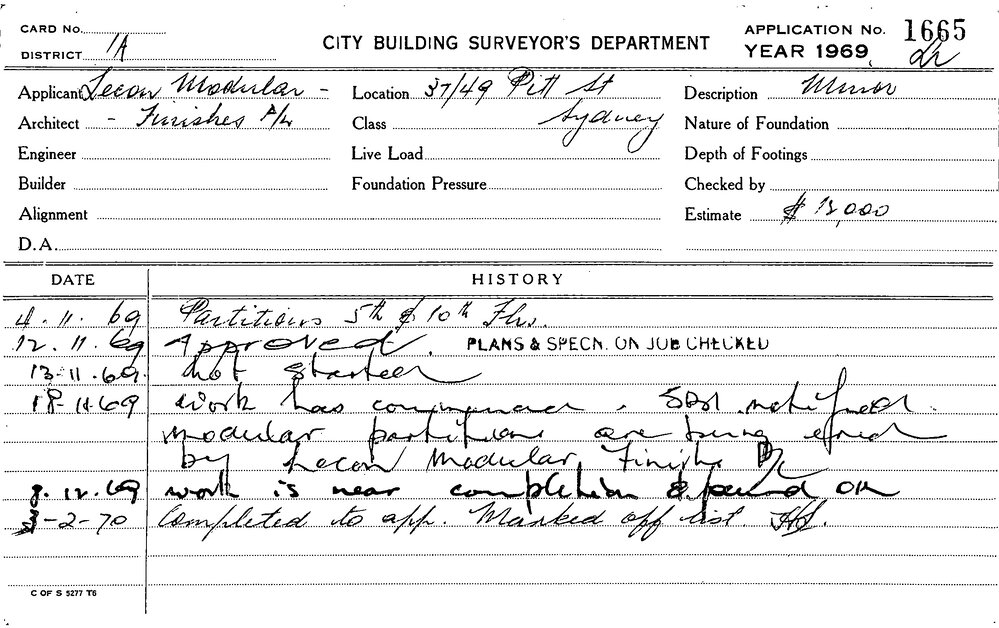 CARD No.
DISTRICT 1A
CITY BUILDING SURVEYOR'S DEPARTMENT
APPLICATION No. 1665
YEAR 1969
Applicant Lecon Modular -
Location 37/49 Pitt St
Description Minor
Architect - Finishes P/L
Class Sydney
Nature of Foundation
Engineer
Live Load
Depth of Footings
Builder
Foundation Pressure
Checked by
Alignment
Estimate $ 12,000
D.A.
DATE HISTORY
4.11.69 Partitions 5th & 10th Flrs.
12.11.69 Approved. PLANS & SPECN. ON JOB CHECKED
13-11.69. not started
18-11.69 work has commenced. notified.
modular partitions are being
by Lecon Modular Finishes P/L
8.12.69 work is near completion & found OK
3-2-70 Completed to app. Marked off list.
C OF S 5277 T6